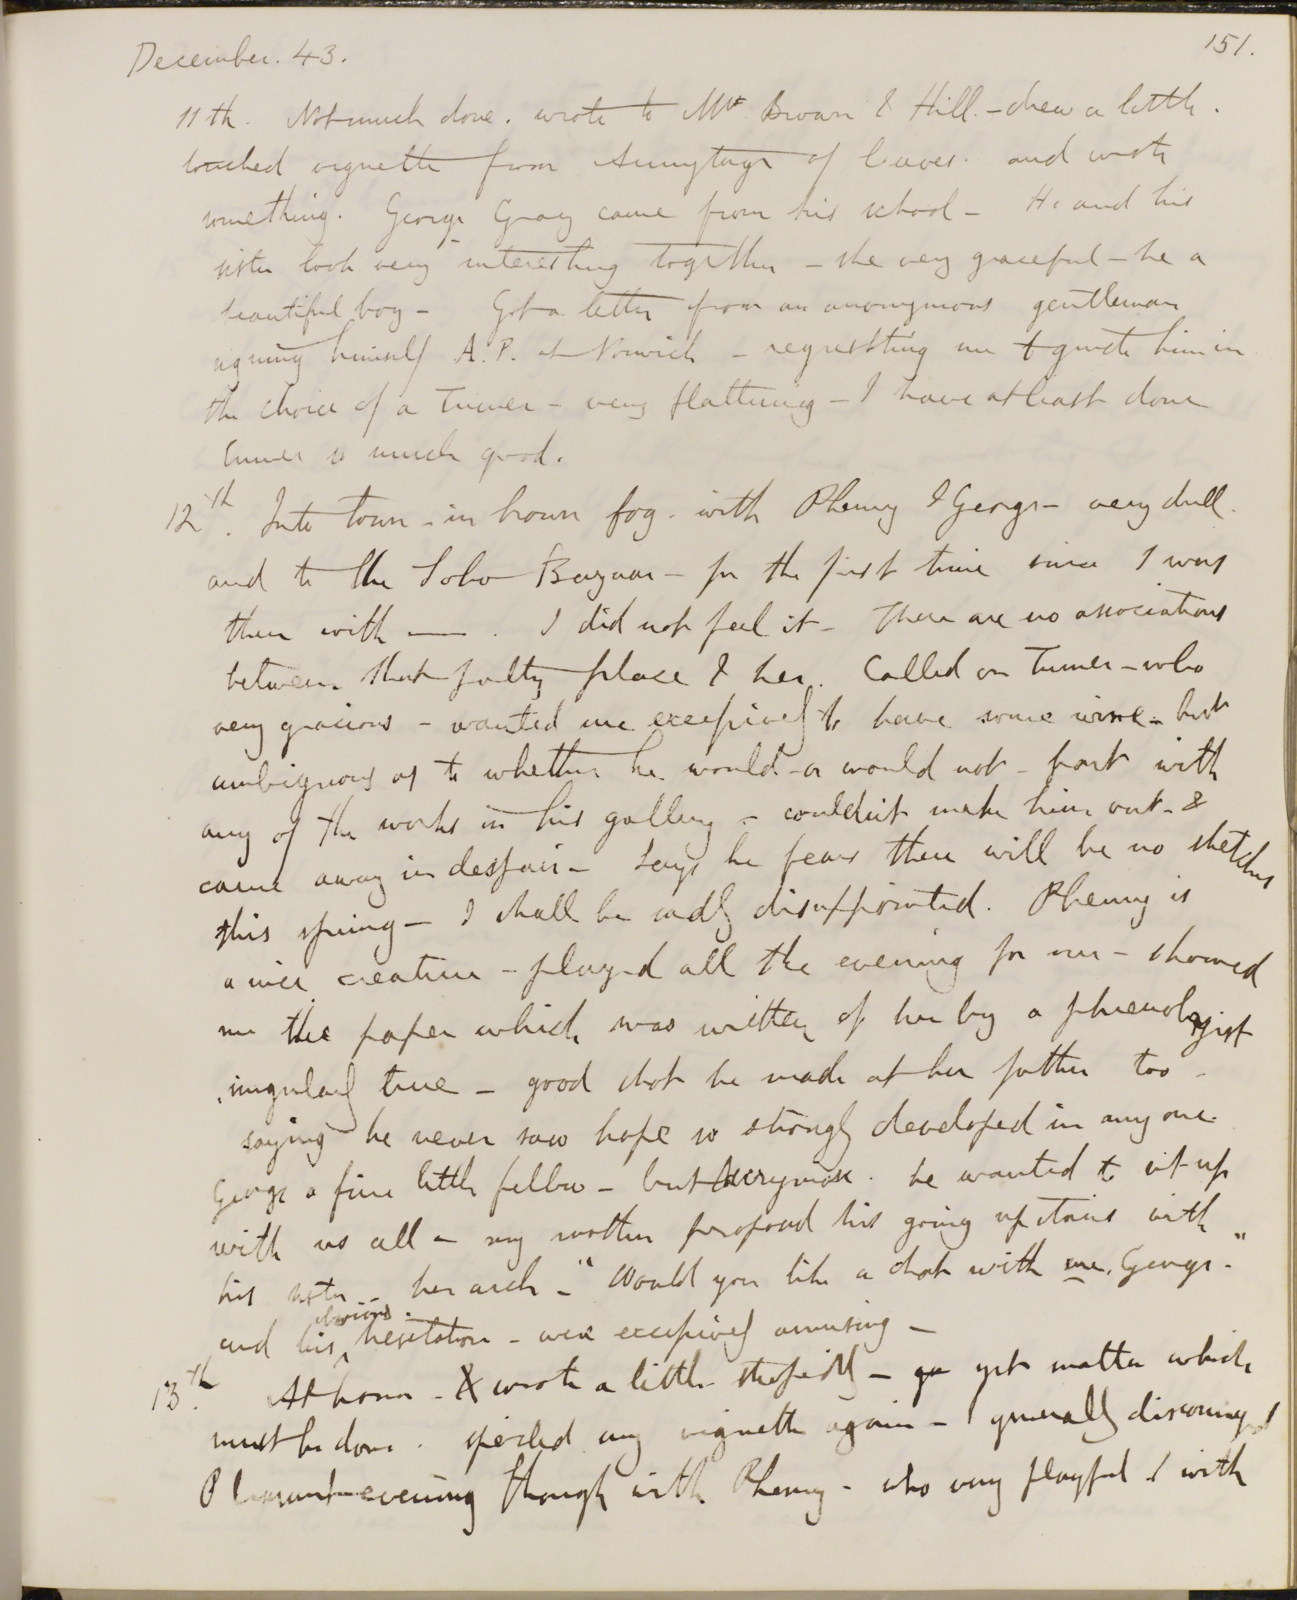 December. 43.
151.
11th. Not much done. wrote to Mr Brown & Hill. - drew a little.
touched vignette from Armytage of leaves. and wrote
something. George Gray came from his school - He and his
sister look very interesting together - she very graceful - he a
beautiful boy - Got a letter from an anonymous gentleman
signing himself A. P. at Norwich - requesting me to guide him in
the choice of a Turner - very flattering - I have at least done
Turner so much good.
12th. Into town - in brown fog. with Phemy & George - very dull.
and to the Soho Bazaar - for the first time since I was
there with —— . I did not feel it - There are no associations
between that paltry place & her. Called on Turner - who
very gracious - wanted me excessively to have some wine - but
ambiguous as to whether he would - or would not - part with
any of the works in his gallery - couldn't make him out - &
came away in despair - Says he fears there will be no sketches
this spring - I shall be sadly disappointed. Phemy is
a nice creature - played all the evening for me - showed
me the paper which was written of her by a phrenologist
singularly true - good shot he made at her father too -
saying he never saw hope so strongly developed in any one.
George a fine little fellow - but he wanted to sit up
with us all - my mother proposed his going upstairs with
his sister - her arch - "Would you like a chat with me, George -"
and his obvious hesitation - were excessively amusing -
13th. At home - X wrote a little stupidly - yet matter which
must be done. spoiled my vignette again - generally discouraged
Pleasant evening though with Phemy - who very playful & with